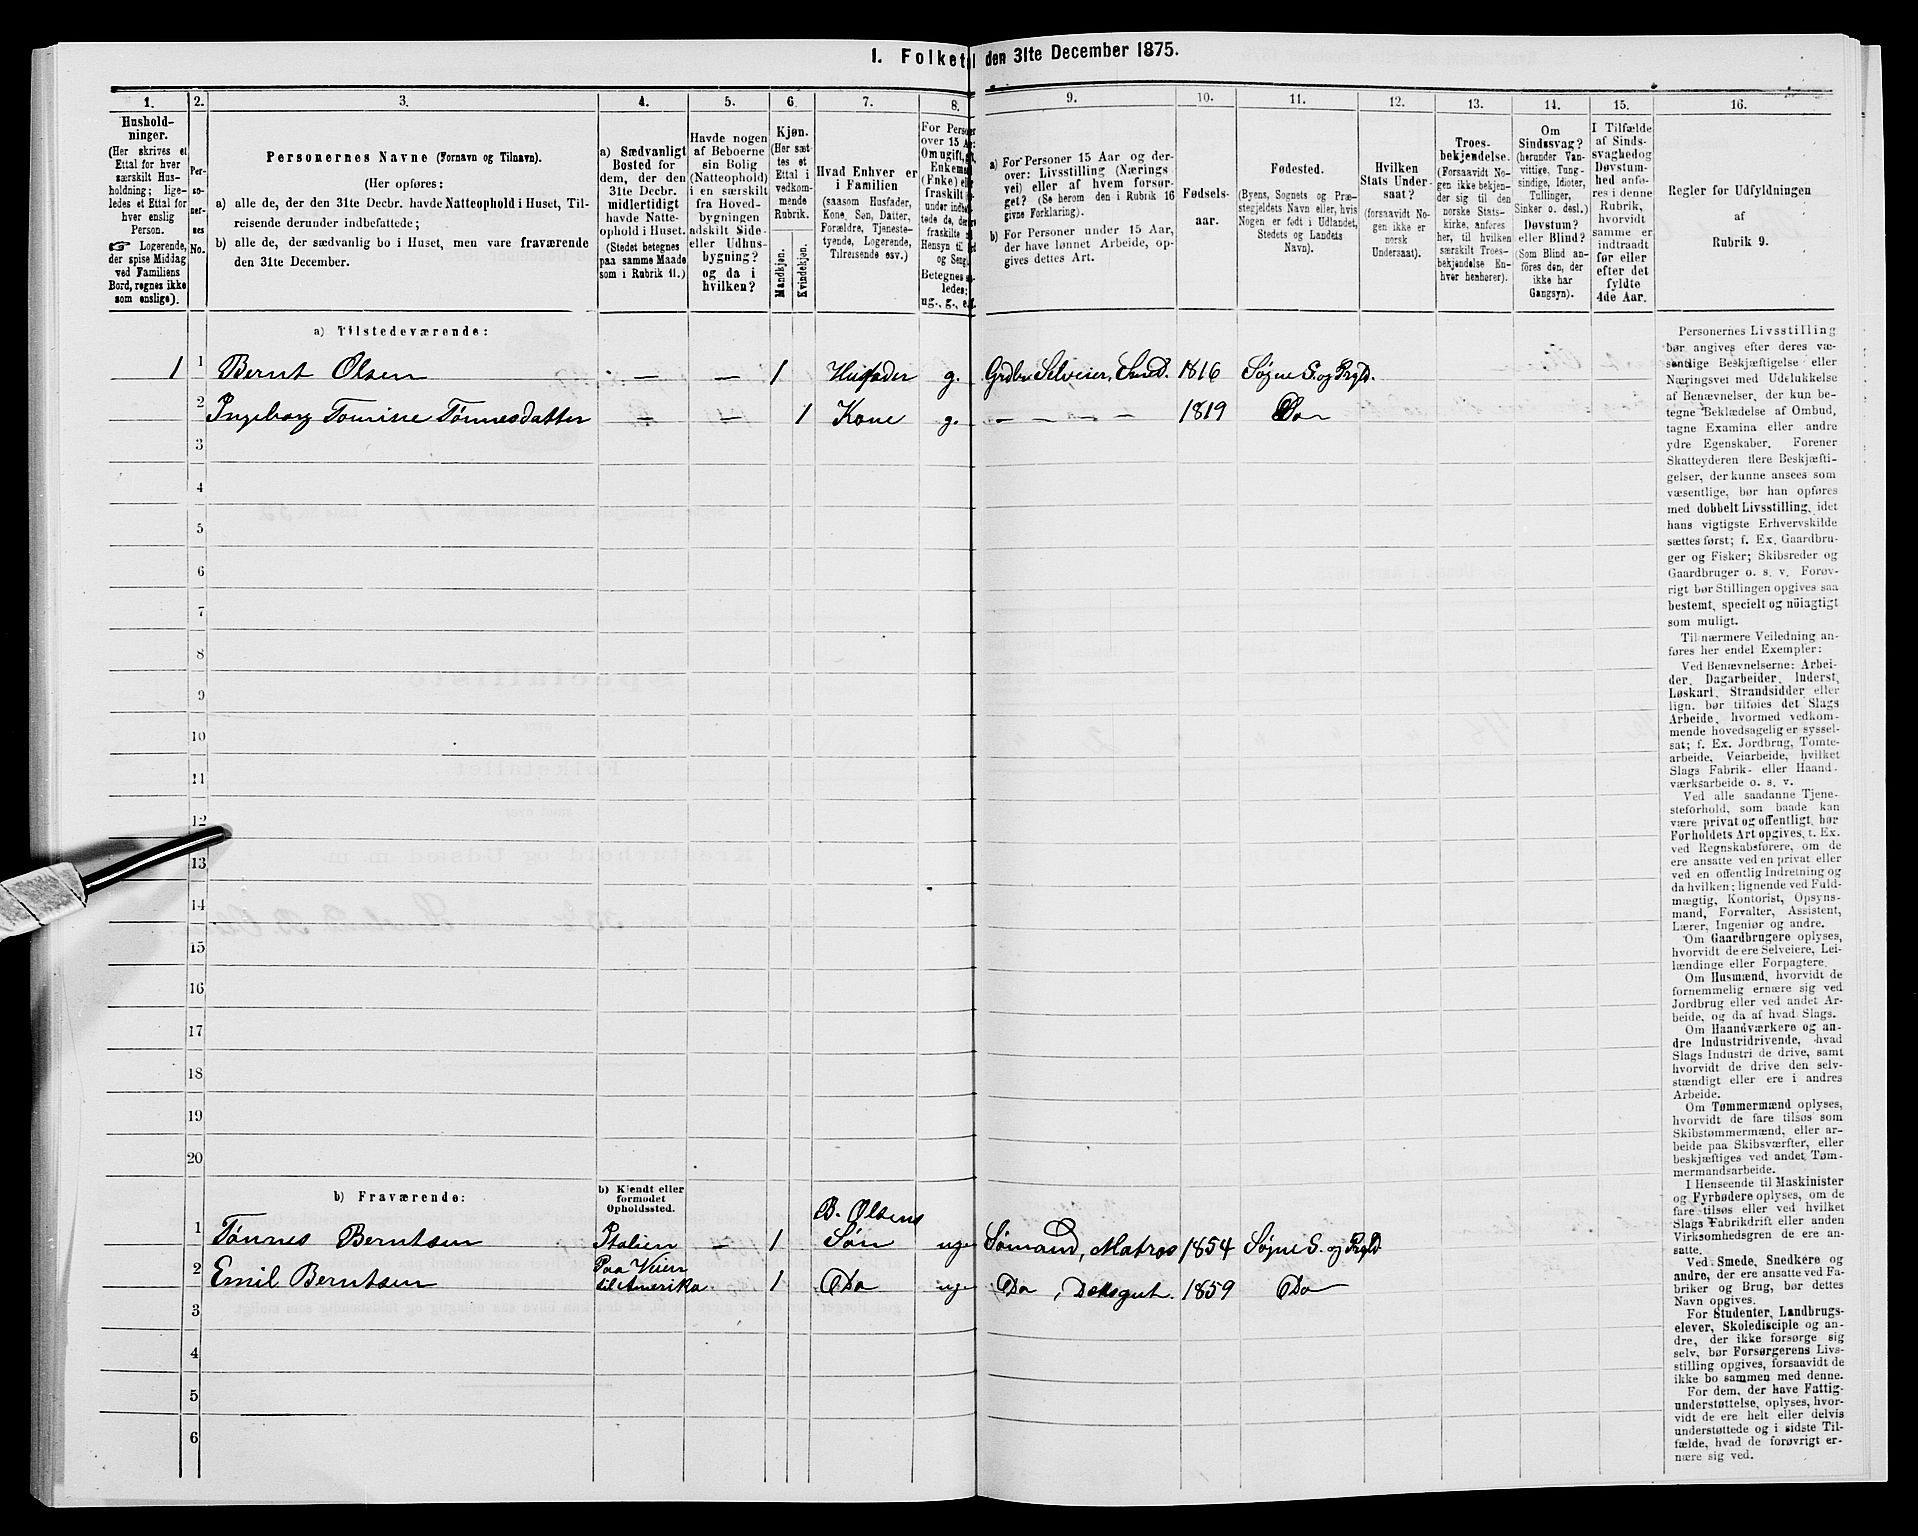 1. Folketal den 31te December 1875.
1. 2. 3. 4. 5. 6. 7. 8. 9. 10. 11. 12. 13. 14. 15. 16.
Hushold-
ninger.
(Her skrives et
Ettal for hver
særskilt Hus-
holdning; lige-
ledes et Ettal for
hver enslig
Person.
☞ Logerende,
der spise Middag
ved Familiens
Bord, regnes ikke
som enslige).
Per-
so-
ner-
nes
No.
Personernes Navne (Fornavn og Tilnavn).
(Her opføres:
a) alle de, der den 31te Decbr. havde Natteophold i Huset, Til-
reisende derunder indbefattede;
b) alle de, der sædvanlig bo i Huset, men vare fraværende
den 31te December.
a) Sædvanligt
Bosted for
dem, der den
31te Decbr.
midlertidigt
havde Natte-
ophold i Huset.
(Stedet betegnes
paa samme Maade
som i Rubrik 11.)
Havde nogen
af Beboerne
sin Bolig
(Natteophold)
i en særskilt
fra Hoved-
bygningen
adskilt Side-
eller Udhus-
bygning?
og da i
hvilken?
Kjøn.
(Her sæt-
tes et
Ettal i
vedkom-
mende
Rubrik.
Mandkjøn.
Kvindekjøn.
Hvad Enhver er
i Familien
(saasom Husfader,
Kone, Søn, Datter,
Forældre, Tjeneste-
tyende, Logerende,
Tilreisende osv.)
For Perso
over 15 A
Om ugift, g
Enkema
(Enke) ell
fraskilt
under indbe
tede de, de
fraskilte
Hensyn til
og Seng
Betegnes s
ledes:
ug., g., e.
a) For Personer 15 Aar og der-
over: Livsstilling (Nærings
vei) eller af hvem forsør-
get? (Se herom den i Rubrik 16
givne Forklaring).
b) For Personer under 15 Aar,
der have lønnet Arbeide, op-
gives dettes Art.
Fødsels-
aar.
Fødested.
(Byens, Sognets og Præ-
stegjeldets Navn eller, hvis
Nogen er født i Udlandet,
Stedets og Landets
Navn).
Hvilken
Stats Under-
saat?
(forsaavidt No-
gen ikke er
norsk
Undersaat).
Troes-
bekjendelse.
(Forsaavidt No-
gen ikke bekjen-
der sig til den
norske Stats-
kirke, anføres
her, til hvilken
særskilt Troes-
bekjendelse En-
hver henhører).
Om
Sindssvag?
(herunder Van-
vittige, Tung-
sindige, Idioter,
Tullinger,
Sinker o. desl.)
Døvstum?
eller Blind?
(Som Blind an-
føres den, der
ikke har
Gangsyn).
I Tilfælde
af Sinds-
svaghed og
Døvstum-
hed anfø-
res i denne
Rubrik,
hvorvidt
samme er
indtraadt
før eller
efter det
fyldte
4de Aar.
Regler for Udfyldningen
af
Rubrik 9.
a) Tilstedeværende:
1 1 Bernt Olsen — — 1 Husfader g. Grdbr. Selveier, Smed. 1816 Søgne S. og Prgld.
2 Ingeborg Tomine Tønnesdatter — — 1 Kone g. — — — 1819 Do
3
4
5
6
7
8
9
10
11
12
13
14
15
16
17
18
19
20
b) Fraværende:
b) Kjendt eller
formodet
Opholdssted.
B. Olsens
1 Tønnes Berntsen Italien — 1 Søn ug. Sømand, Matros 1854 Søgne S. og Prgld
Paa Veien
2 Emil Berntsen til Amerika 1 Do ug. Do, Deksgut. 1859 Do
3
4
5
6
Personernes Livsstilling
bør angives efter deres væ-
sentlige Beskjæftigelse eller
Næringsvei med Udelukkelse
af Benævnelser, der kun be-
tegne Beklædelse af Ombud,
tagne Examina eller andre
ydre Egenskaber. Forener
Skatteyderen flere Beskjæfti-
gelser, der kunne ansees som
væsentlige, bør han opføres
med dobbelt Livsstilling, idet
hans vigtigste Erhvervskilde
sættes først; f. Ex. Gaardbru-
ger og Fisker; Skibsreder og
Gaardbruger o. s. v. Forøv-
rigt bør Stillingen opgives saa
bestemt, specielt og nøiagtigt
som muligt.
Til nærmere Veiledning an-
føres her endel Exempler:
Ved Benævnelserne: Arbei-
der, Dagarbeider, Inderst,
Løskarl, Strandsidder eller
lign. bør tilføies det Slags
Arbeide, hvormed vedkom-
mende hovedsagelig er syssel-
sat; f. Ex. Jordbrug, Tomte-
arbeide, Veiarbeide, hvilket
Slags Fabrik- eller Haand-
værksarbeide o. s. v.
Ved alle saadanne Tjene-
steforhold, som baade kan
være privat og offentligt, bør
Forholdets Art opgives, t. Ex.
ved Regnskabsførere, om de
ere ansatte ved en privat eller
ved en offentlig Indretning og
da hvilken; lignende ved Fuld-
mægtig, Kontorist, Opsyns-
mand, Forvalter, Assistent,
Lærer, Ingeniør og andre.
Om Gaardbrugere oplyses,
hvorvidt de ere Selveiere, Lei-
lændinge eller Forpagtere.
Om Husmænd, hvorvidt de
fornemmelig ernære sig ved
Jordbrug eller ved andet Ar-
beide, og da af hvad Slags.
Om Haandværkere og an-
dre Industridrivende, hvad
Slags Industri de drive, samt
hvorvidt de drive den selv-
stændigt eller ere i andres
Arbeide.
Om Tømmermænd oplyses,
hvorvidt de fare tilsøs som
Skibstømmermænd, eller ar-
beide paa Skibsværfter, eller
beskjæftiges ved andet Tøm-
mermandsarbeide.
I Henseende til Maskinister
og Fyrbødere oplyses, om de
fare tilsøs eller ved hvilket
Slags Fabrikdrift eller anden
Virksomhedsgren de ere an-
satte.
Ved Smede, Snedkere og
andre, der ere ansatte ved Fa-
briker og Brug, bør dettes
Navn opgives.
For Studenter, Landbrugs-
elever, Skoledisciple og an-
dre, der ikke forsørge sig
selv, bør Forsørgerens Livs-
stilling opgives, forsaavidt de
ikke bo sammen med denne.
For dem, der have Fattig-
understøttelse, oplyses, hvor-
vidt de ere helt eller delvis
understøttede og i sidste Til-
fælde, hvad de forøvrigt er-
nære sig ved.